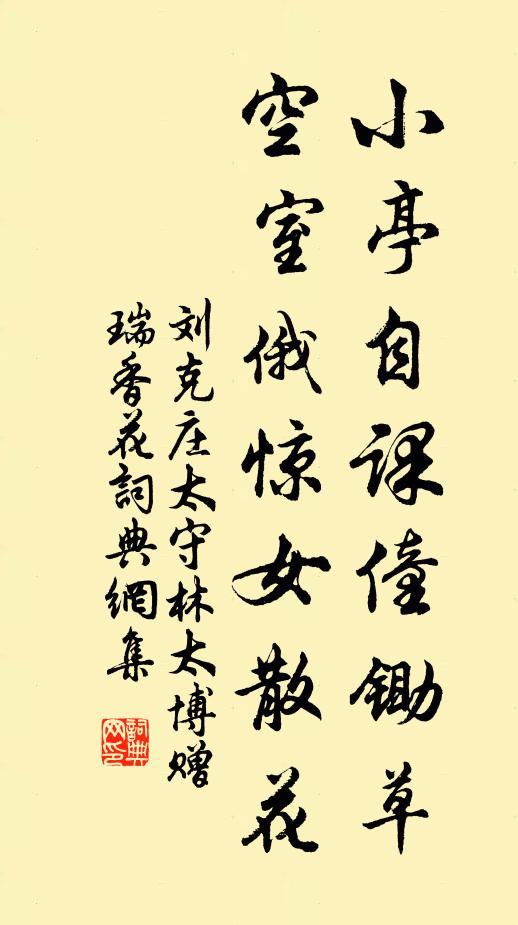 小亭自课僮锄草
空室俄惊女散花
刘克庄太守林太博赠
瑞香花詞典網集
詞典网印